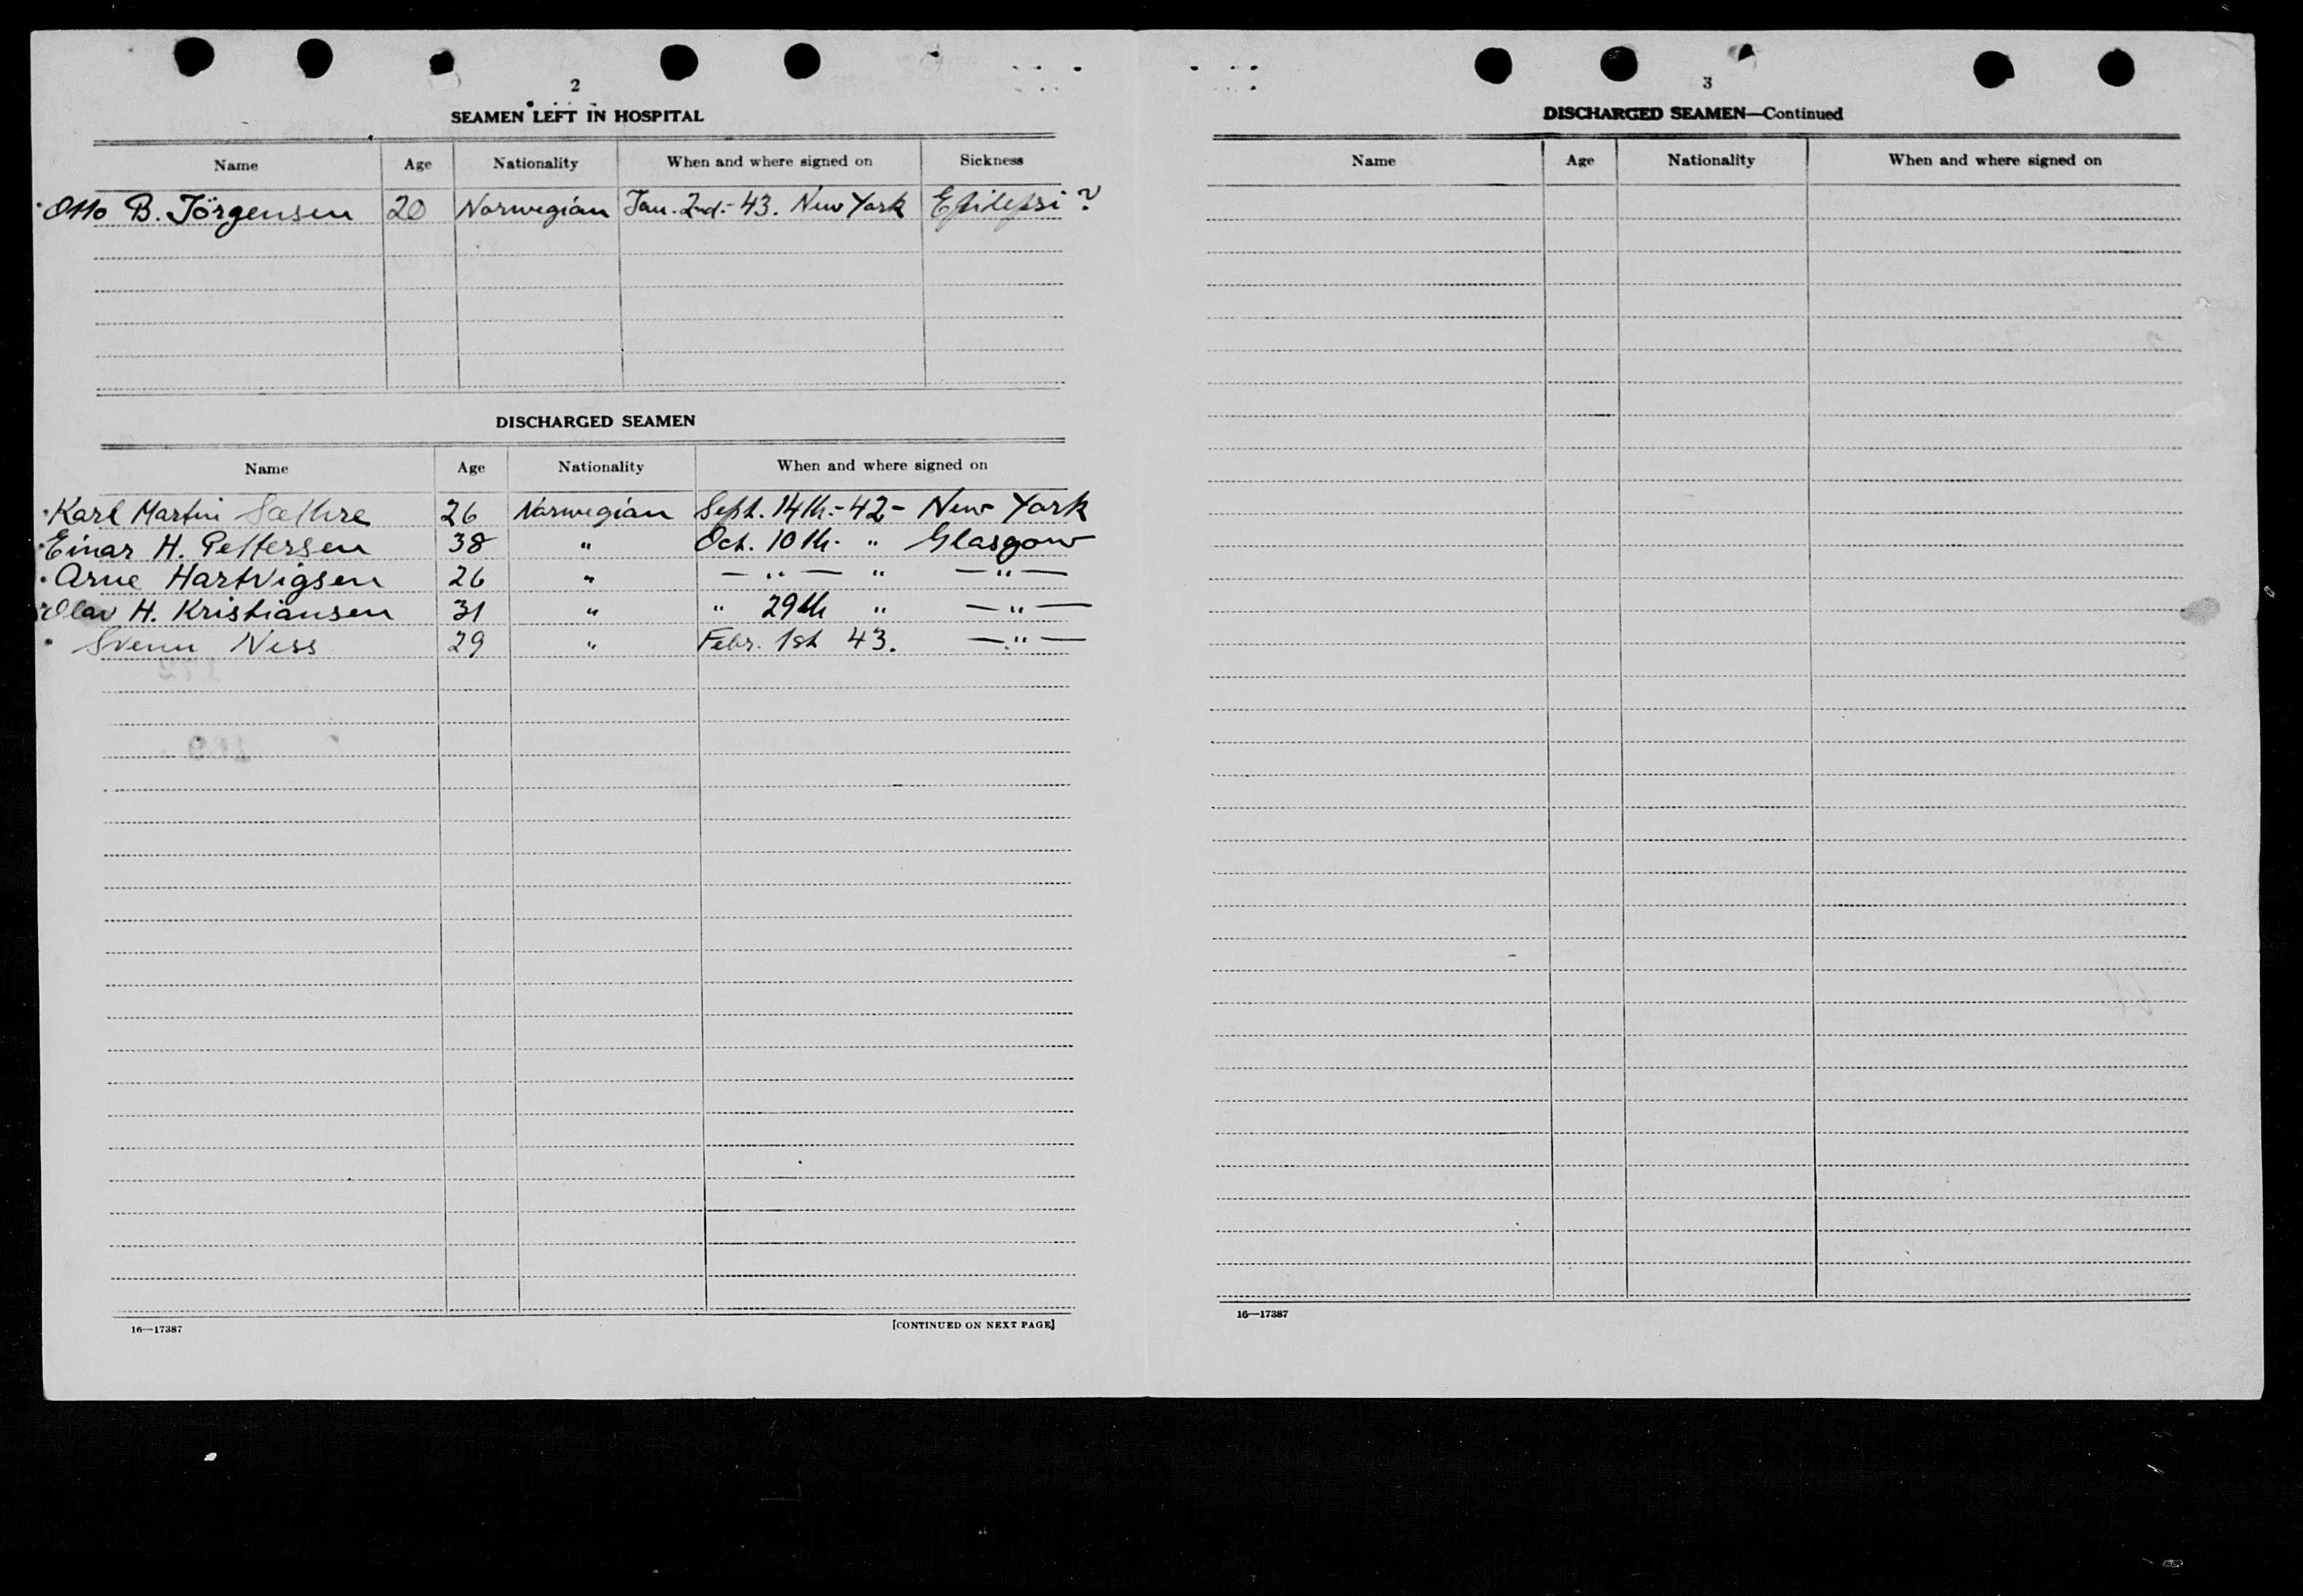 2
SEAMEN LEFT IN HOSPITAL
Name Age Nationality When and where signed on Sickness
Otto B. Jörgensen 20 Norwegian Jan. 2nd.- 43. New York Epilepsi ?
DISCHARGED SEAMEN
Name Age Nationality When and where signed on
Karl Martin Sæthre 26 Norwegian Sept. 14th.- 42 - New York
Einar H. Pettersen 38 " Oct. 10th. " Glasgow
Arne Hartvigsen 26 " — " — " — " —
Olav H. Kristiansen 31 " " 29th " — " —
Svenn Ness 29 " Febr. 1st 43. — " —
16—17387 [CONTINUED ON NEXT PAGE]
3
DISCHARGED SEAMEN—Continued
Name Age Nationality When and where signed on
16—17387